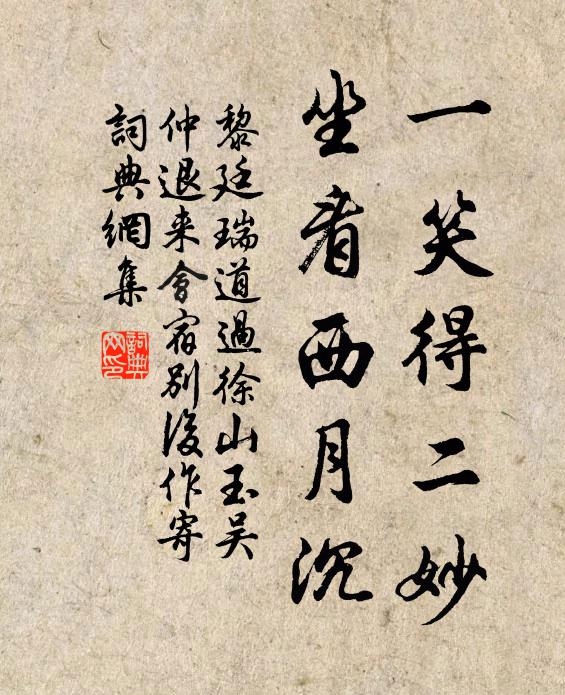 一笑得二妙
坐看西月沉
黎廷瑞道過徐山玉吴
仲退来會宿别後作寄
詞典網集
詞典
网印